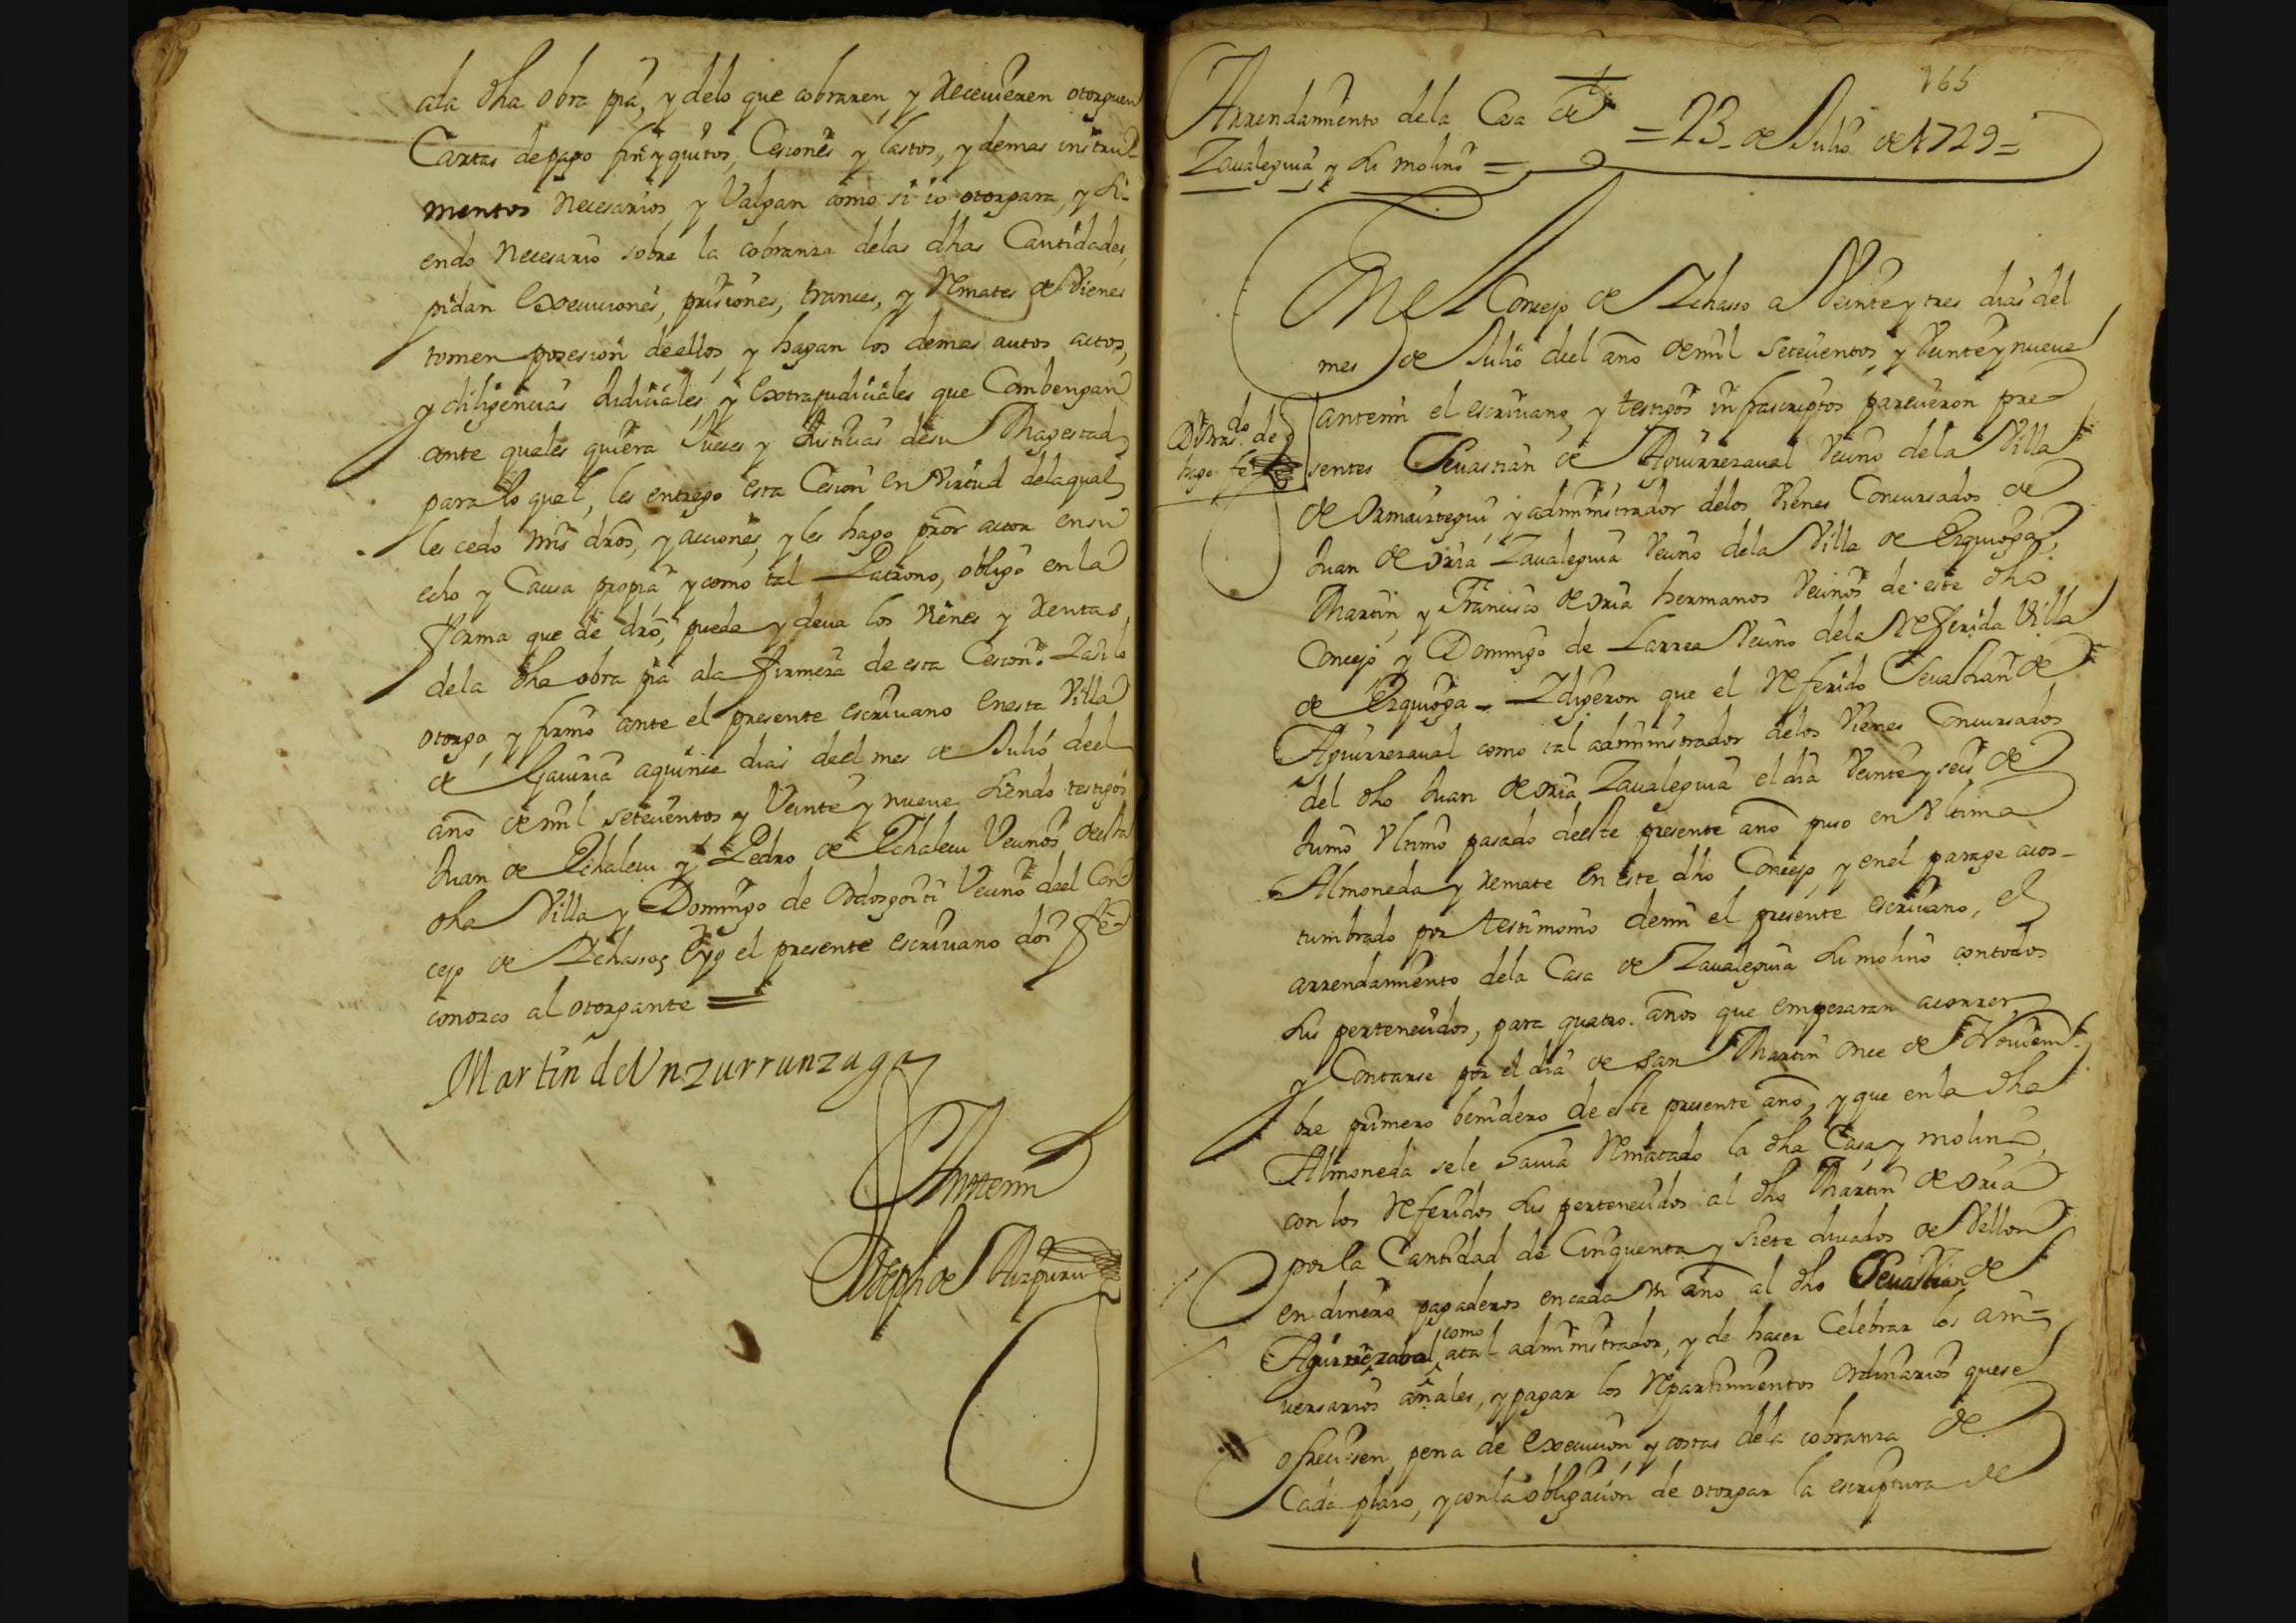 ala dha obra pia, y delo que cobraren, y Receuieren otorguen
Cartas depago finyquitos, Cesiones y lastos, y demas instru-
mentos Necesarios y Valgan como si io otorgara, y Si-
endo Necesario sobre la cobranza delas dhas Cantidades,
pidan Execuciones, prisiones, trances, y Remates de Vienes
tomen posesion deellos, y hagan los demas autos actos,
y diligencias Judiciales y Extrajudiciales que Combengan
ante quales quiera Jueces y Justicias desu Magestad
para lo qual, les entrego esta Cesion en Virtud delaqual
les cedo mis dros, y acciones, y les hago pror actor ensu
echo y Causa propia y como tal Patrono, obligo enla
forma que de dro, pueda y deua los Vienes y Rentas
dela dha obra pia ala firmeza de esta Cesion. Iasilo
otorgo, y firmo ante el presente escriuano enesta Villa
de Gauiria aquince dias deel mes de Julio deel
año de mil setecientos y Veinte y nueue Siendo testigos
Juan de Echalecu y Pedro de Echalecu Vecinos deesta
dha Villa y Domingo de Odosgoiti Vecino deel Con-
cejo de Ichasso, Eyo el presente escriuano doi fee
conozco al otorgante =
Martin de Unzurrunzaga
Antemi
Joseph de Aizpuru
165
Arrendamiento dela Casa de
Zaualeguia y Su molino =
= 23 de Julio de 1729 =
En el Concejo de Ichasso a Veinte y tres dias del
mes de Julio deel año demil Setecientos, y Veinte y nueue
antemi el escriuano, y testigos infrascriptos parecieron pre-
sentes Seuastian de Aguirrezaual Vecino dela Villa
de Ormaiztegui, y administrador delos Vienes Concursados de
Juan de Oria Zaualeguia Vecino dela Villa de Ezquioga,
Martin, y Francisco de Oria hermanos Vecinos de este dho
Concejo y Domingo de Larrea Vecino dela Referida Villa
de Ezquioga = Idigeron que el Referido Seuastian de
Aguirrezaual como tal administrador delos Vienes Concursados
del dho Juan de Oria Zaualeguia el dia Veinte y seis de
Junio Ultimo pasado deeste presente año puso en Ultima
Almoneda y Remate en este dho Concejo, y enel parage acos-
tumbrado por testimonio demi el presente escriuano, el
arrendamiento dela Casa de Zaualeguia Su molino contodos
Sus pertenecidos, para quatro. años que empezaran acorrer,
y Contarse por el dia de San Martin Once de Nouiem-
bre primero benidero de este presente año, y que en la dha
Almoneda sele hauia Rematado la dha Casa y molino,
con los Referidos Sus pertenecidos al dho Martin de Oria
por la Cantidad de Cinquenta y siete ducados de Vellon
en dinero pagaderos encada Un año al dho Seuastian de
Aguirrezaval, como atal administrador, y de hacer Celebrar los ani-
uersarios añales, y pagar los Repartimientos Ordinarios quese
ofreciesen, pena de Execucion, y costas dela cobranza de
Cada plazo, y con la obligacion de otorgar la escriptura de